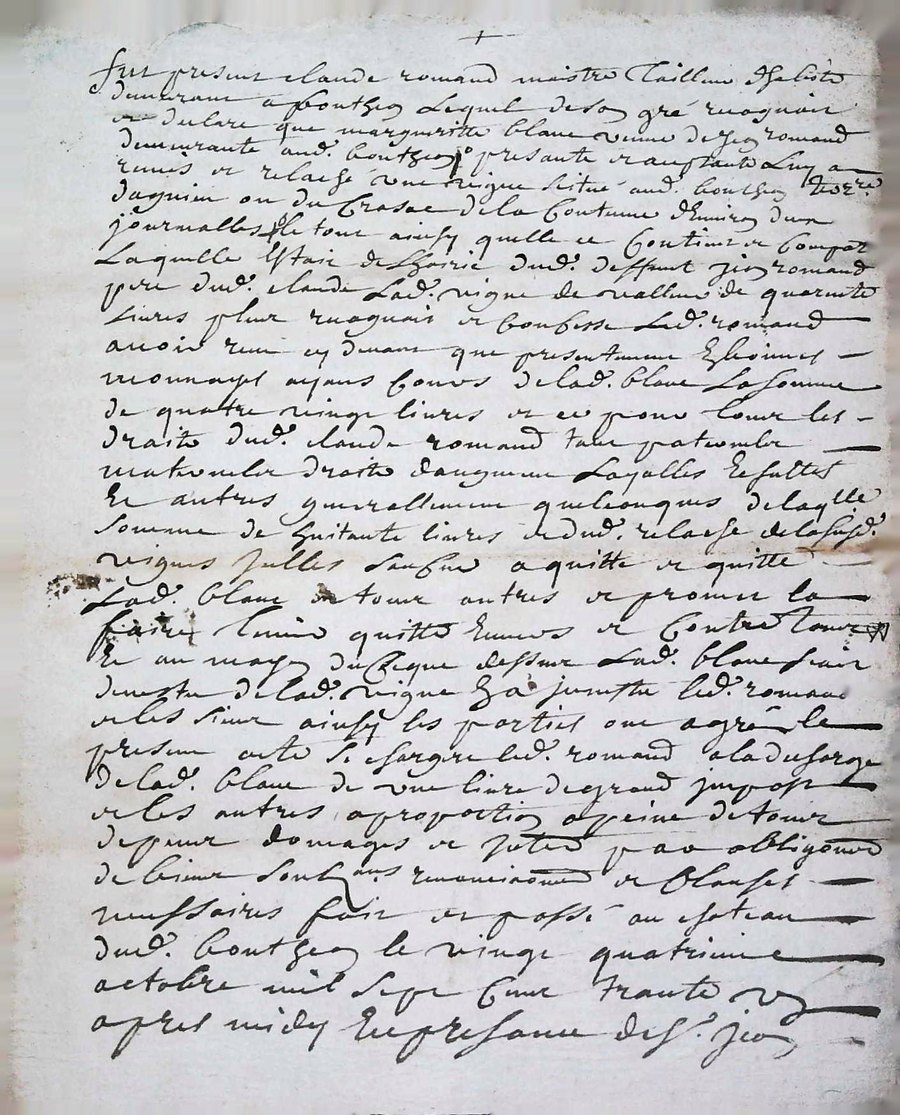 +
fut present claude romand maistre Tailleur d'habits
demeurant a boutheon Lequel de son gré recognoit
et declare que margueritte blanc veuve de jean romand
demeurante aud. boutheon presante et acceptante Luy a
remis et relaché une vigne scitué aud. boutheon
ou du de la Contenue d'Environ d'un
journalles le tout ainsy quelle ce Contient et Comporte
Laquelle Estoit de L'hoirie dud. deffunt jean romand
pere dud. claude Lad. vigne de valleur de quarente
Livres plus recognoit et Confesse Led. romand
avoir receu cy devant que presentement En bonnes
monnoyes ayans Cours de lad. blanc La somme
de quattre vingt livres et ce pour tous les
droits dud. claude romand tant paternels
maternels droits d'augment
Et autres generallement quelconques de laqlle
Somme de huitante livres et dud. relache de la susd.
vigne a quitté et quitte
Lad. blanc et tous autres et promet la
faire tenir quitte Envers et Contre Tous
Et au moyen du dessus Lad. blanc
de lad. vigne led. romand
et les siens ainsy les parties ont agréé le
present acte Se chargera led. romand a la decharge
de lad. blanc de une livre de grand impost
et les autres a proportion a peine de tous
depens domages et par obligations
de biens renonciations et Clauses
necessaires fait et passé au chateau
dud. boutheon le vingt quatrieme
octobre mil sept Cent trante
apres midy En presance de Sr. jean